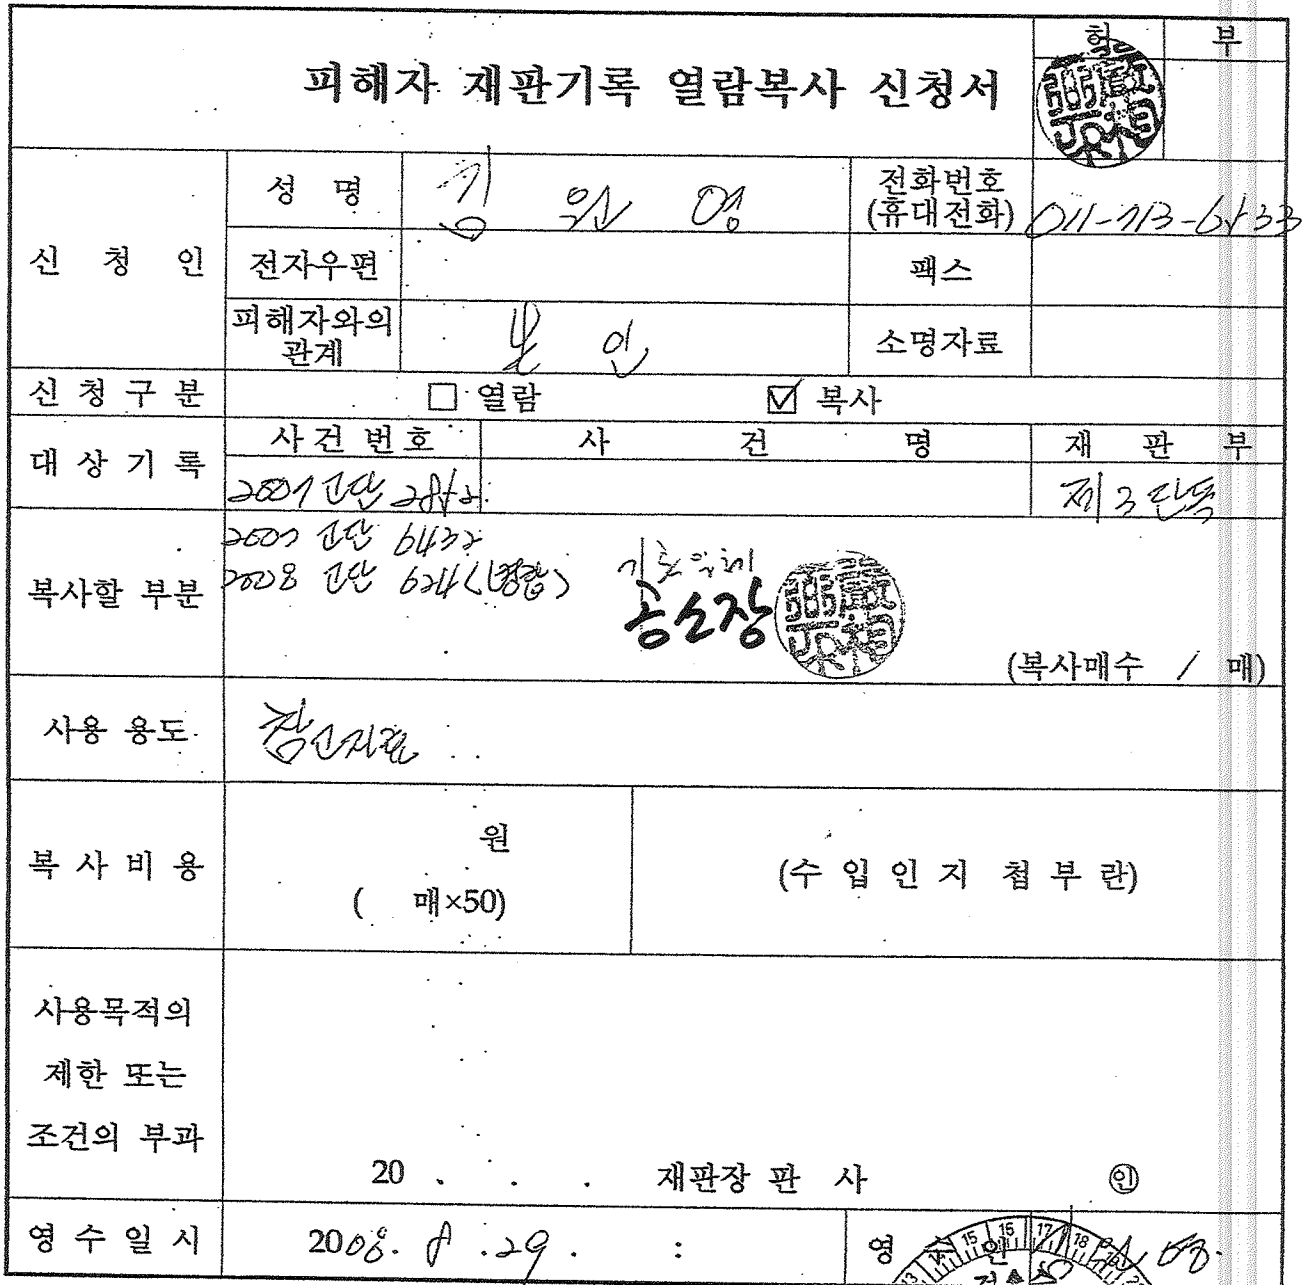 피해자 재판기록 열람복사 신청서
허 부
신 청 인
성 명 김 원 영
전화번호
(휴대전화) 011-713-6533
전자우편
팩스
피해자와의
관계
본 인
소명자료
신 청 구 분 □ 열람 ☑ 복사
대 상 기 록
사 건 번 호 사 건 명 재 판 부
2007 고단 2852 제3단독
복사할 부분
2007 고단 6432
2008 고단 624 (병합)
기록 일체
공소장
(복사매수 / 매)
사용 용도 참고자료
복 사 비 용
원
( 매×50)
(수 입 인 지 첩 부 란)
사용목적의
제한 또는
조건의 부과
20 . . . 재판장 판 사 ㊞
영 수 일 시 2008. 8 .29 . :
영 수 인
13 14 15 16 17 18